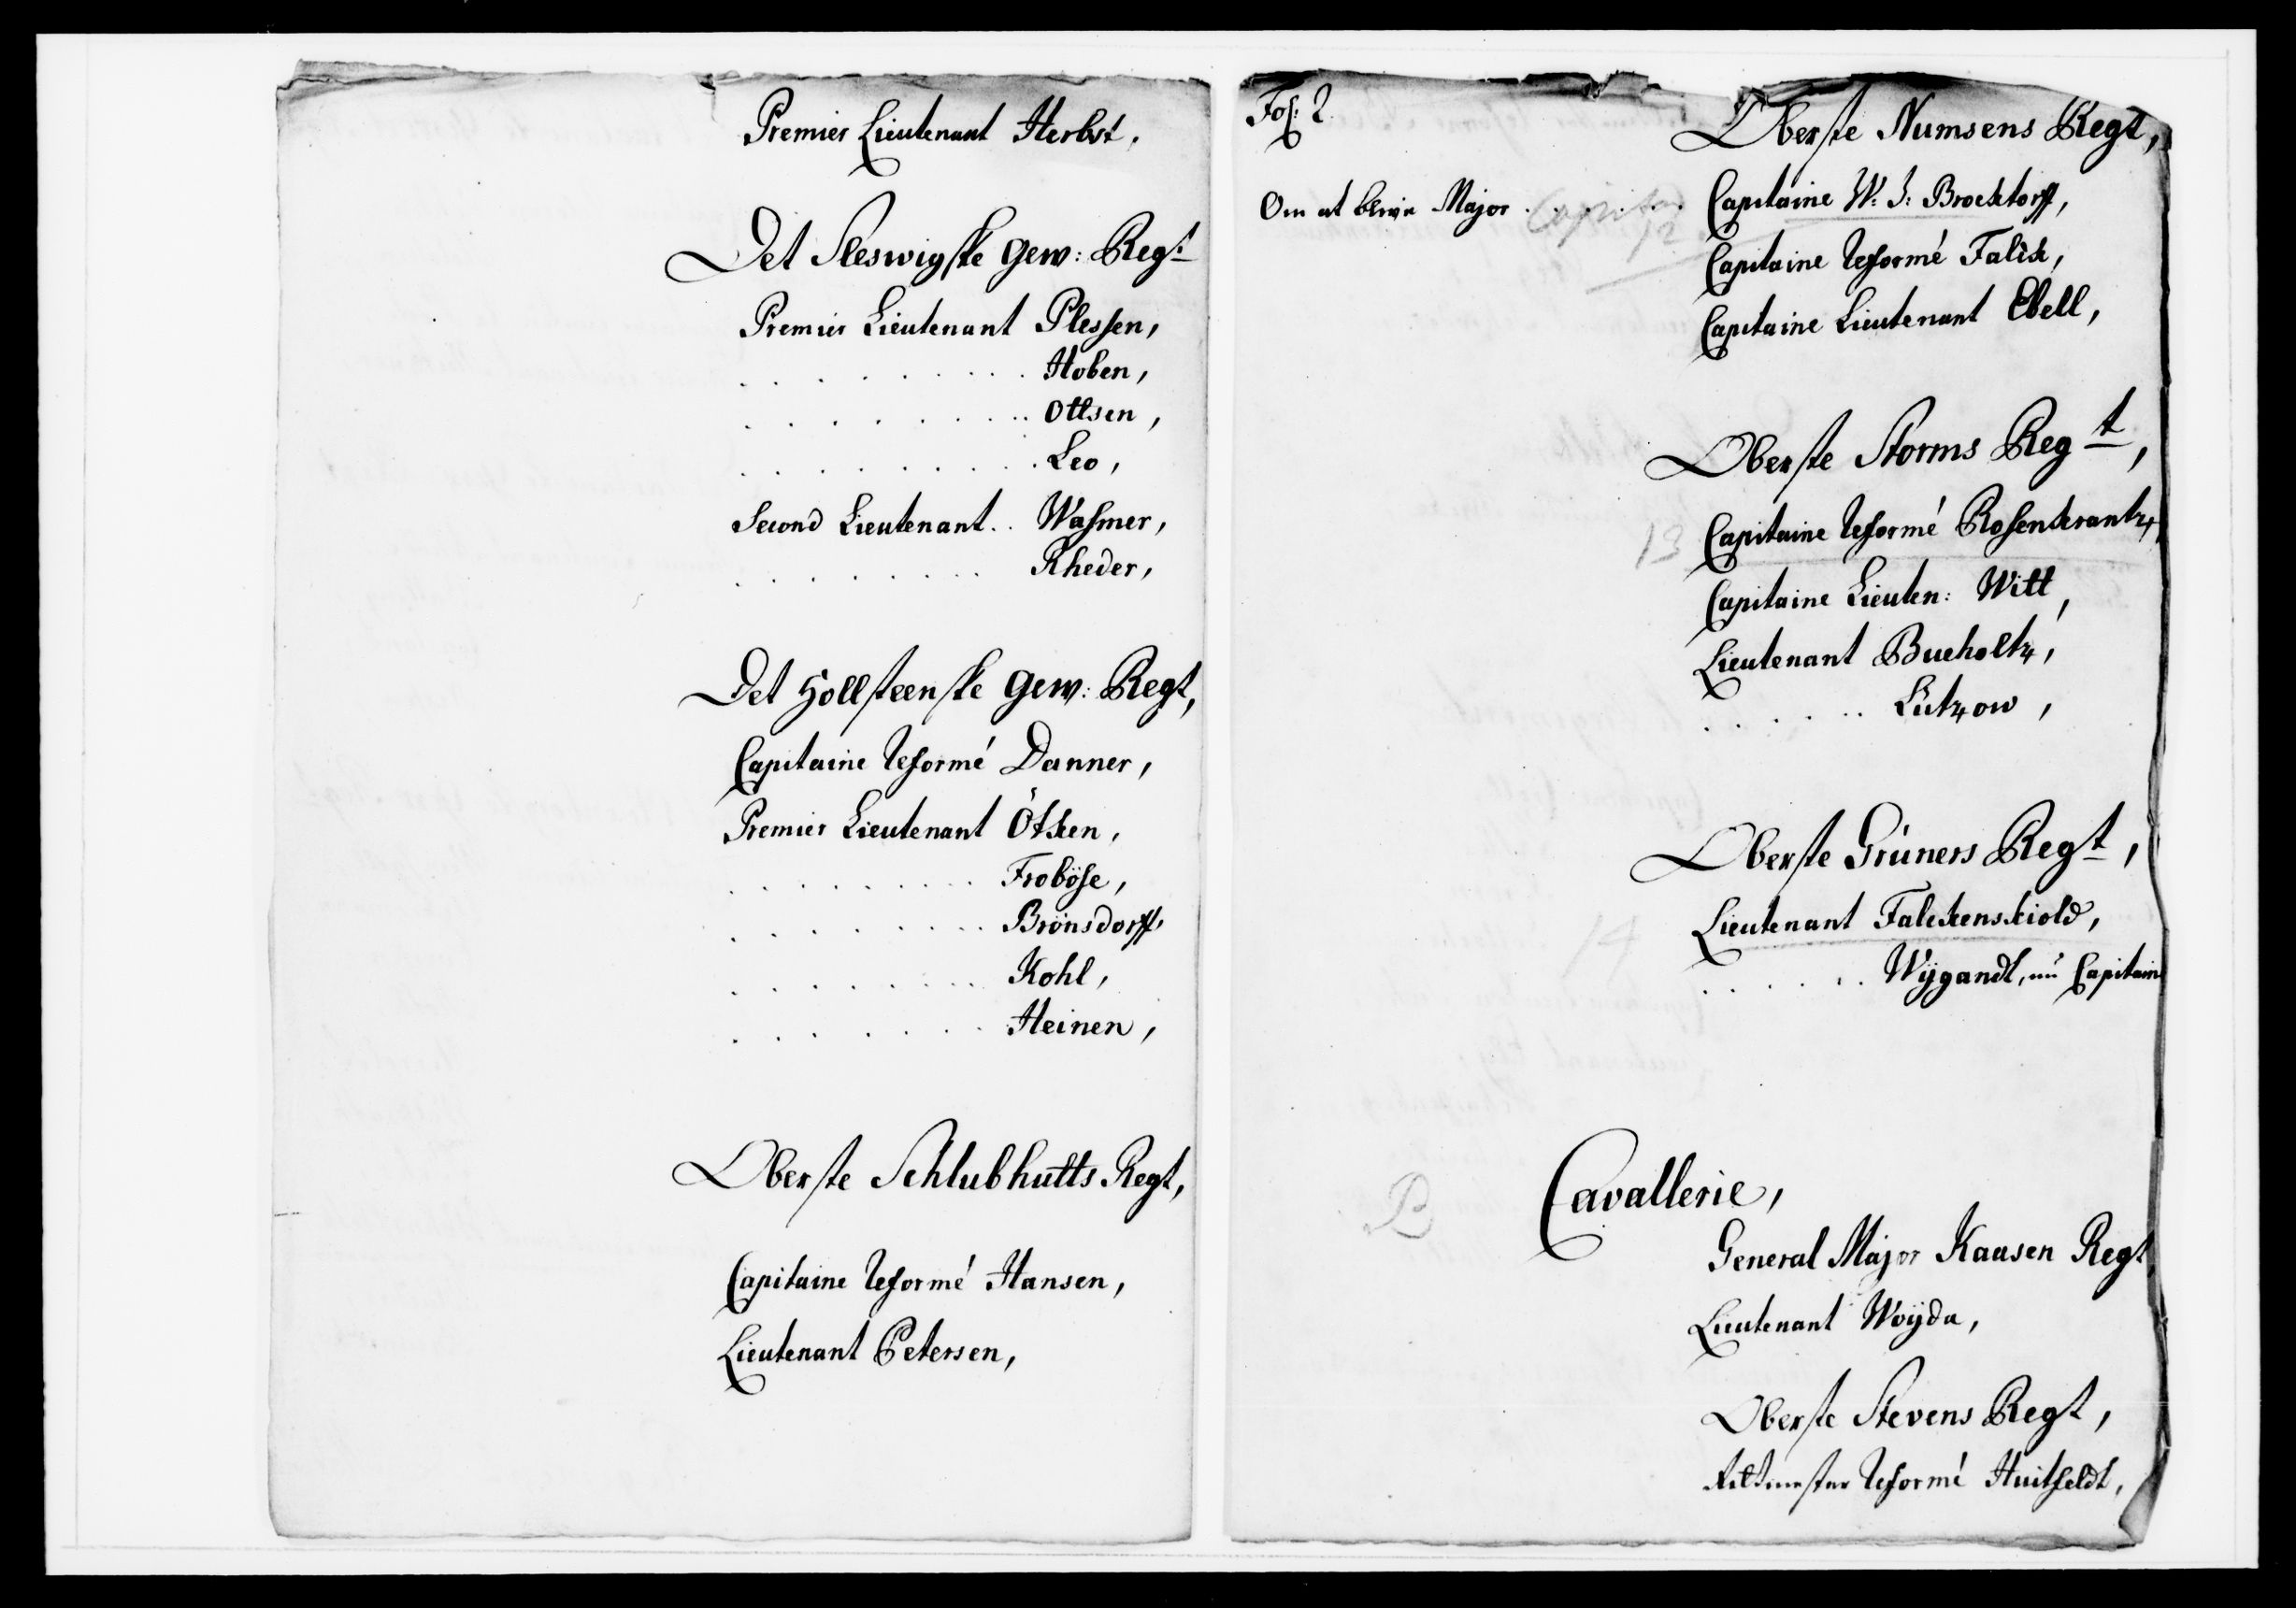 Premier Lieutenant Herbst.
Det Sleswigske Gew: Regt
Premier Lieutenant Plessen,
. . . . . . . . . Hoben,
. . . . . . . . . Ottsen,
. . . . . . . . . Leo,
Second Lieutenant . . Wasmer,
. . . . . . . . Rheder,
Det Hollsteenske Gew: Regt,
Capitaine Reformé Danner,
Premier Lieutenant Ötken,
. . . . . . . . . Froböse,
. . . . . . . . . Brönsdorff,
. . . . . . . . . Kohl,
. . . . . . . . . Heinen,
Oberste Schlubhutts Regt,
Capitaine Reformé Hansen,
Lieutenant Petersen,
Fol: 2.
Oberste Numsens Regt,
Om at blive Major . . . . . . Capitaine W: J: Brocktorff,
12
Capitaine Reformé Falck,
Capitaine Lieutenant Ebell,
Oberste Storms Regt,
13 Capitaine Reformé Rosenkrantz,
Capitaine Lieuten: Witt,
Lieutenant Bucholtz,
. . . . . . Lützow,
Oberste Grüners Regt,
14 Lieutenant Falckenskiold,
. . . . . . Wÿgandt, nu Capitain
B Cavallerie,
General Major Kaasen Regt,
Lieutenant Woÿda,
Oberste Stevens Regt,
Ritmester Reformé Huitfeldt,